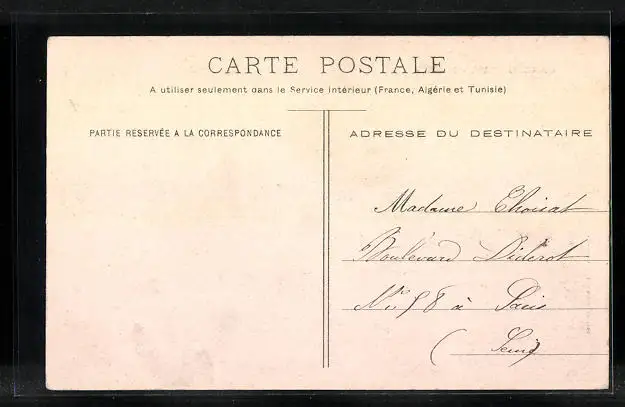 CARTE POSTALE
A utiliser seulement dans le Service intérieur (France, Algérie et Tunisie)
PARTIE RESERVÉE A LA CORRESPONDANCE
ADRESSE DU DESTINATAIRE
Madame
Boulevard Diderot
à Paris
(Seine)